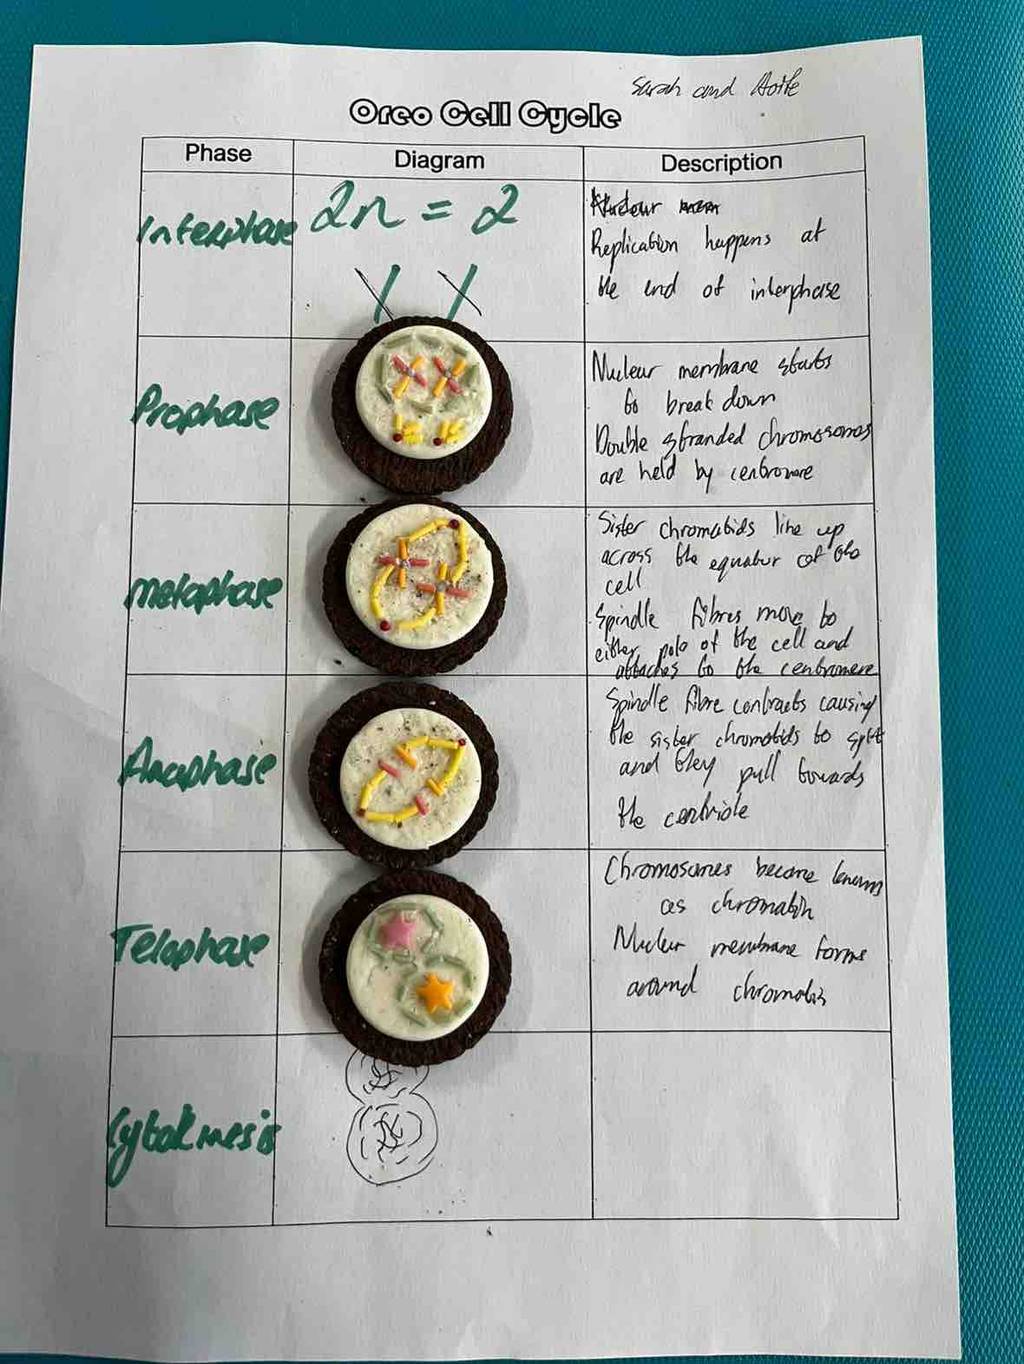 Sarah and Aoife
Oreo Cell Cycle
Phase Diagram Description
Interphase
2n = 2
Replication happens at
the end of interphase
Prophase
Nuclear membrane starts
to break down
Double stranded chromosomes
are held by centromere
Metaphase
Sister chromatids line up
across the equator of the
cell
Spindle fibres move to
either pole of the cell and
attaches to the centromere
Anaphase
Spindle fibre contracts causing
the sister chromatids to split
and they pull towards
the centriole
Telophase
Chromosomes become known
as chromatin
Nuclear membrane forms
around chromatin
Cytokinesis